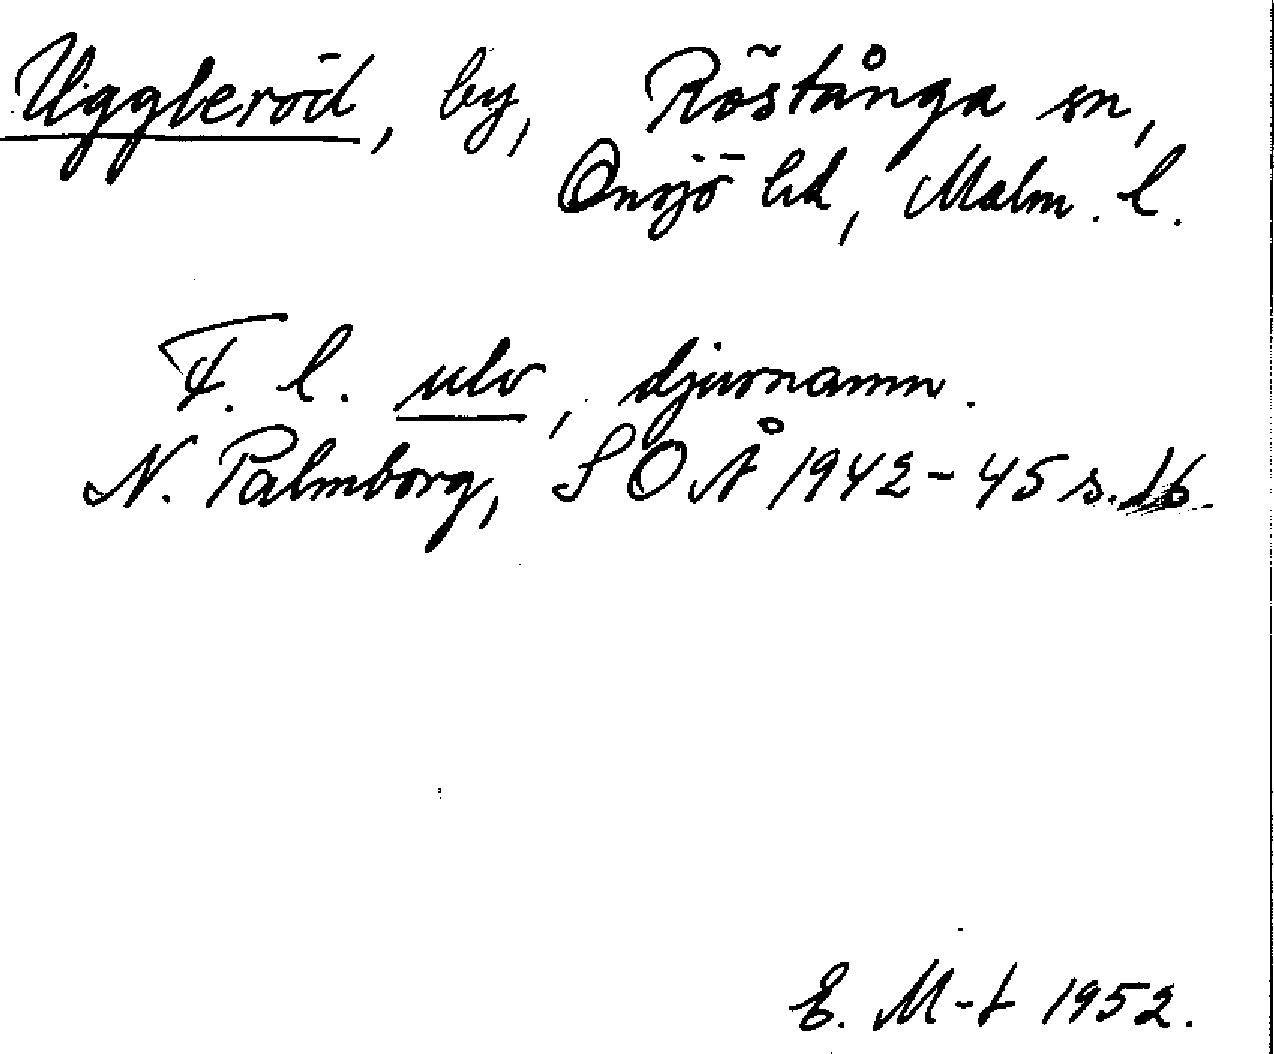 Uggleröd, by, Röstånga sn,
Onsjö hd, Malm. l.
F. l. ulv, djurnamn.
N. Palmborg, SOÅ 1942-45 s. 16.
E. M-t 1952.